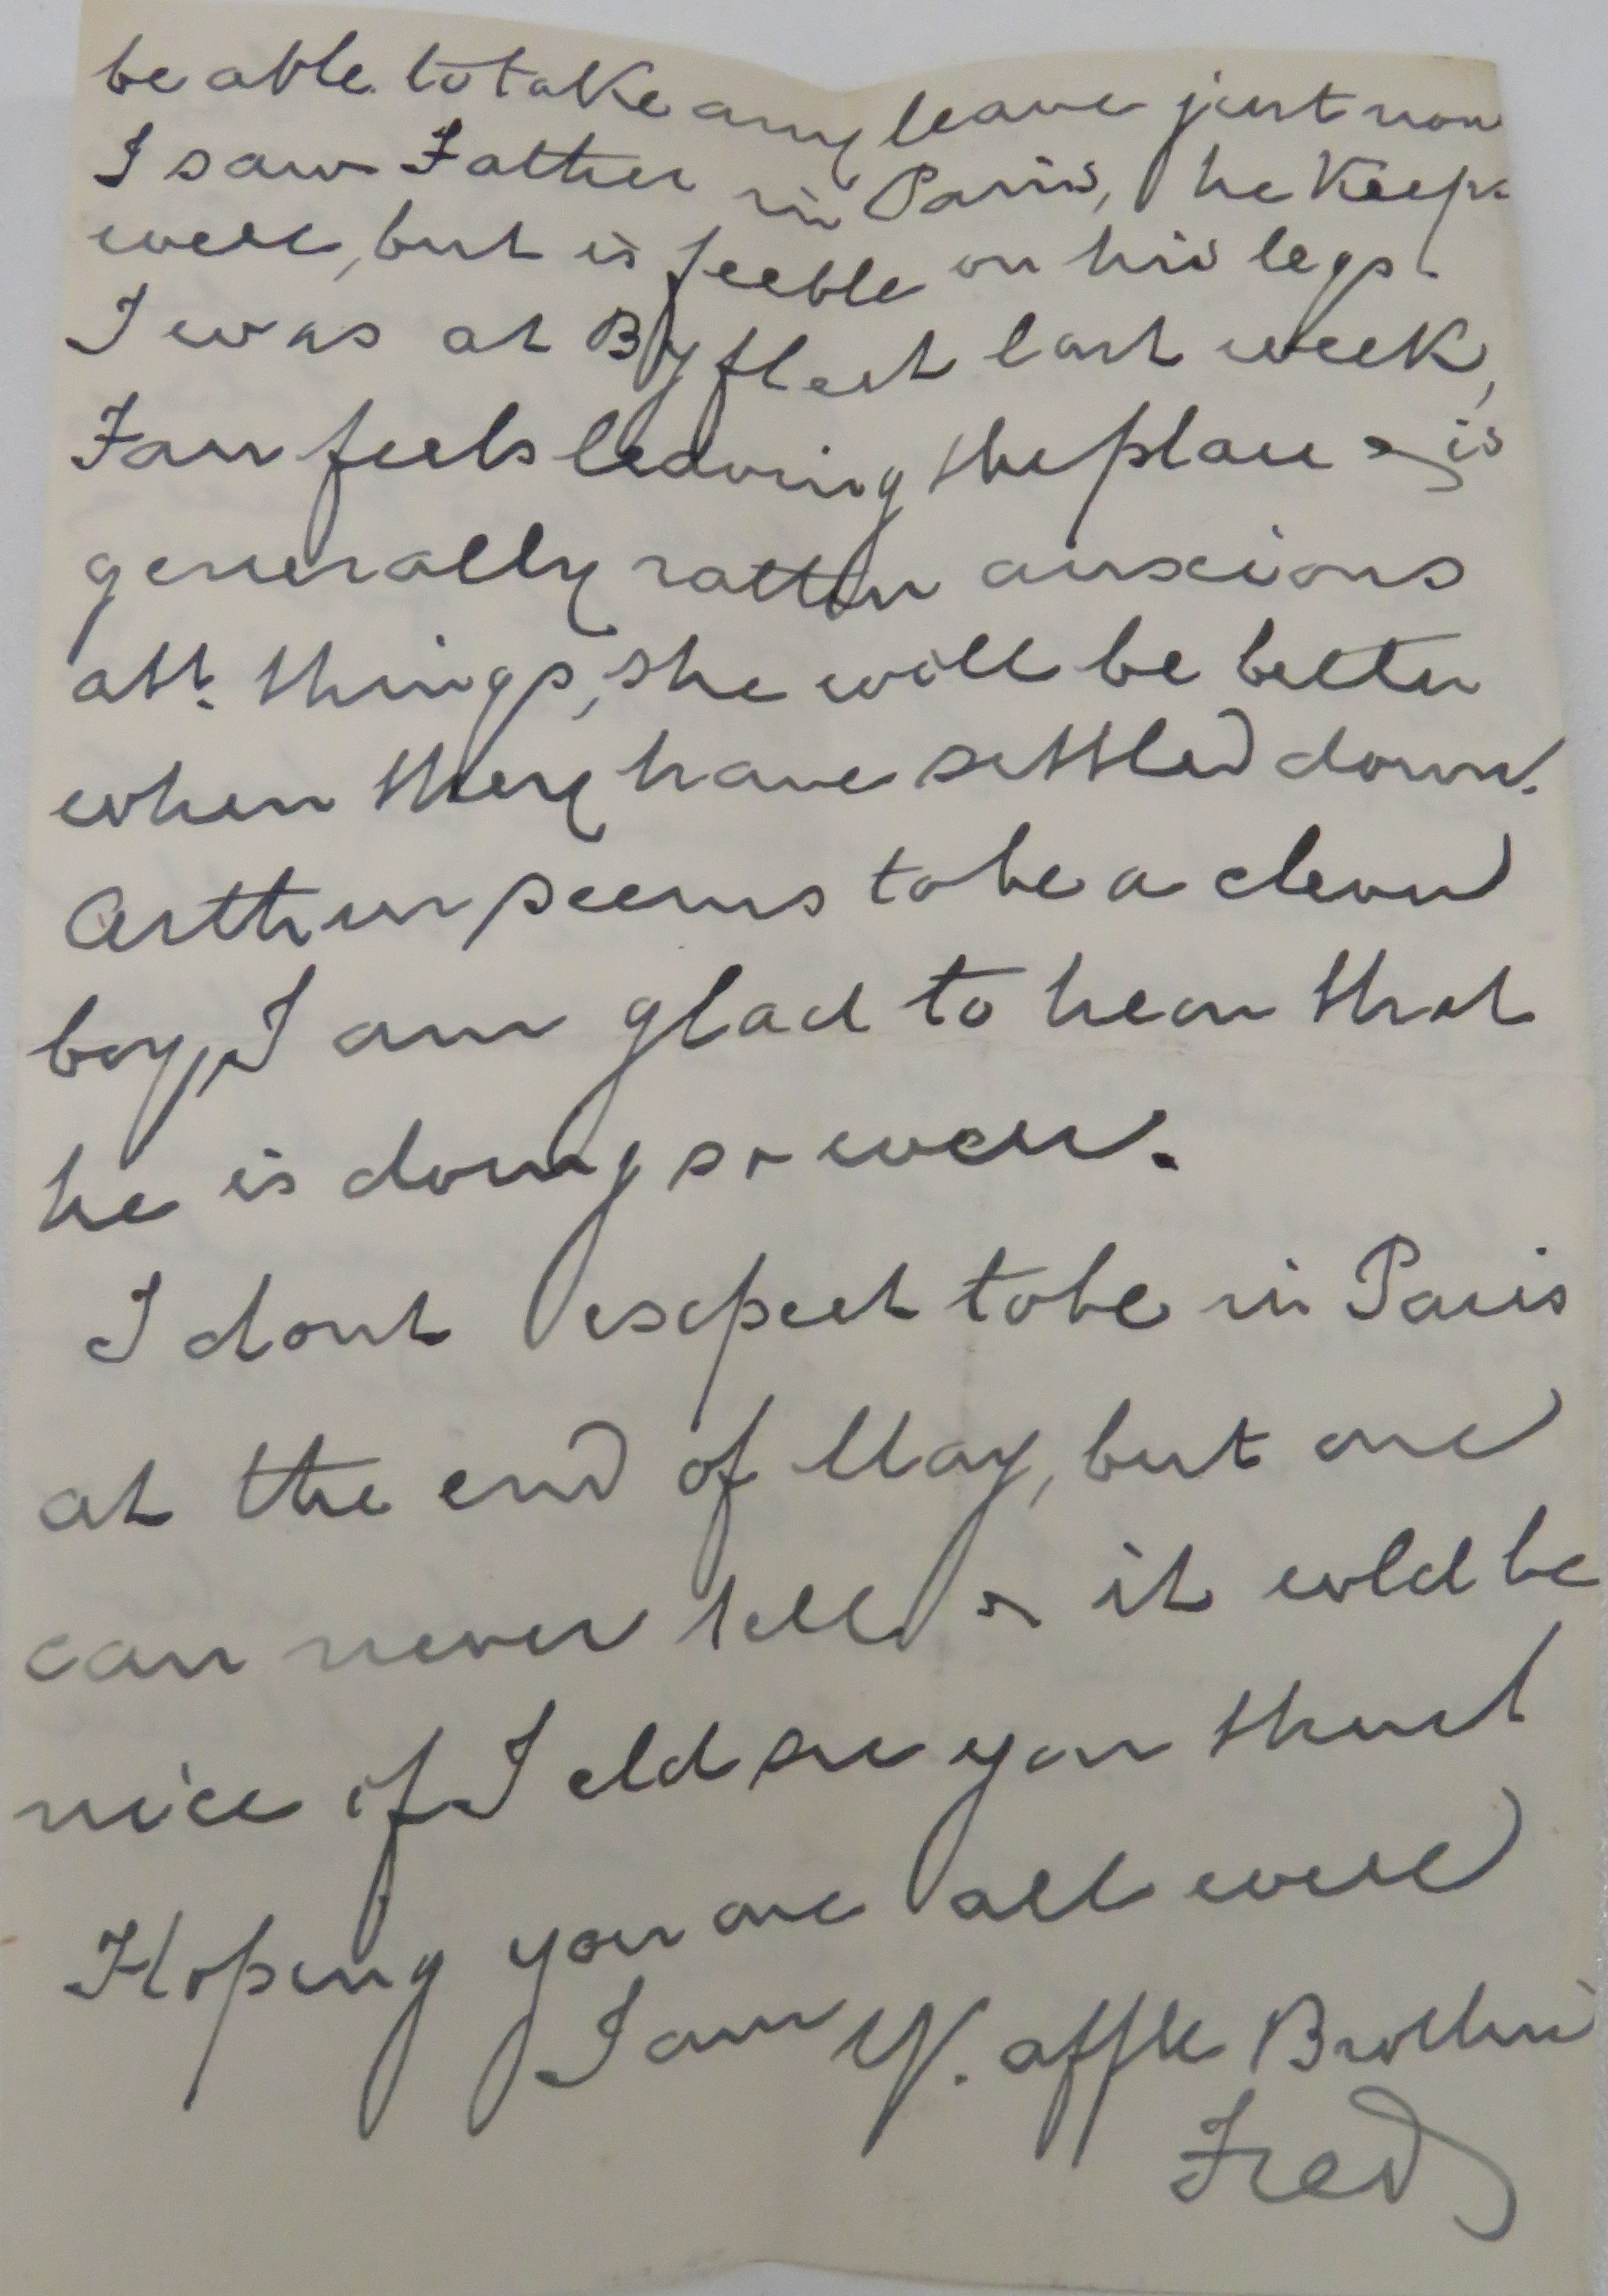 be able to take any leave just now
I saw Father in Paris, he Keeps
well, but is feeble on his legs.
I was at Byfleet last week,
Fan feels leaving the place & is
generally rather anxious
abt. things, she will be better
when they have settled down.
Arthur seems to be a clever
boy, I am glad to hear that
he is doing so well.
I dont expect to be in Paris
at the end of May, but one
can never tell & it wold be
nice if I cld see you there
Hoping you are all well
I am Yr. affte Brother
Fred